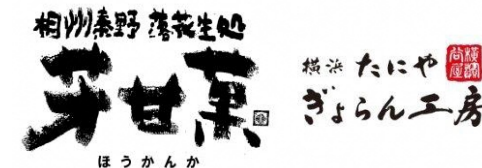 相州秦野 落花生処
芽甘菓
ほうかんか
横浜 たにや
ぎょらん工房
横濱谷屋